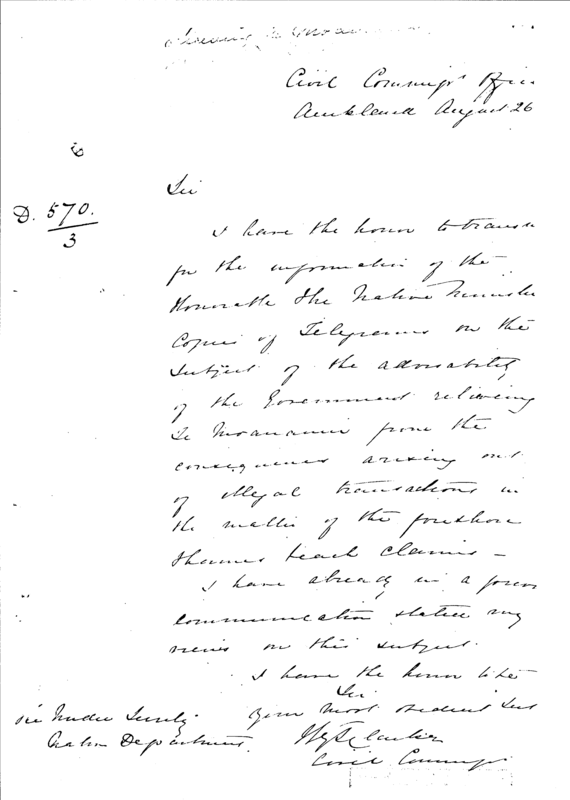 Civil Commissrs Office
Auckland August 26
6
Sir
D. 570.
3
I have the honor to transm
for the information of the
Honorable the Native Minister
Copies of Telegrams on the
Subject of the advisability
of the Government relieving
Te Moananui from the
consequences arising out
of illegal transactions in
the matter of the foreshore
Thames beach claims —
I have already in a former
communication stated my
views on this subject.
I have the honor to be
Sir
Your Most obedient Servt
Civil Commissr
The Under Secrety
Native Department